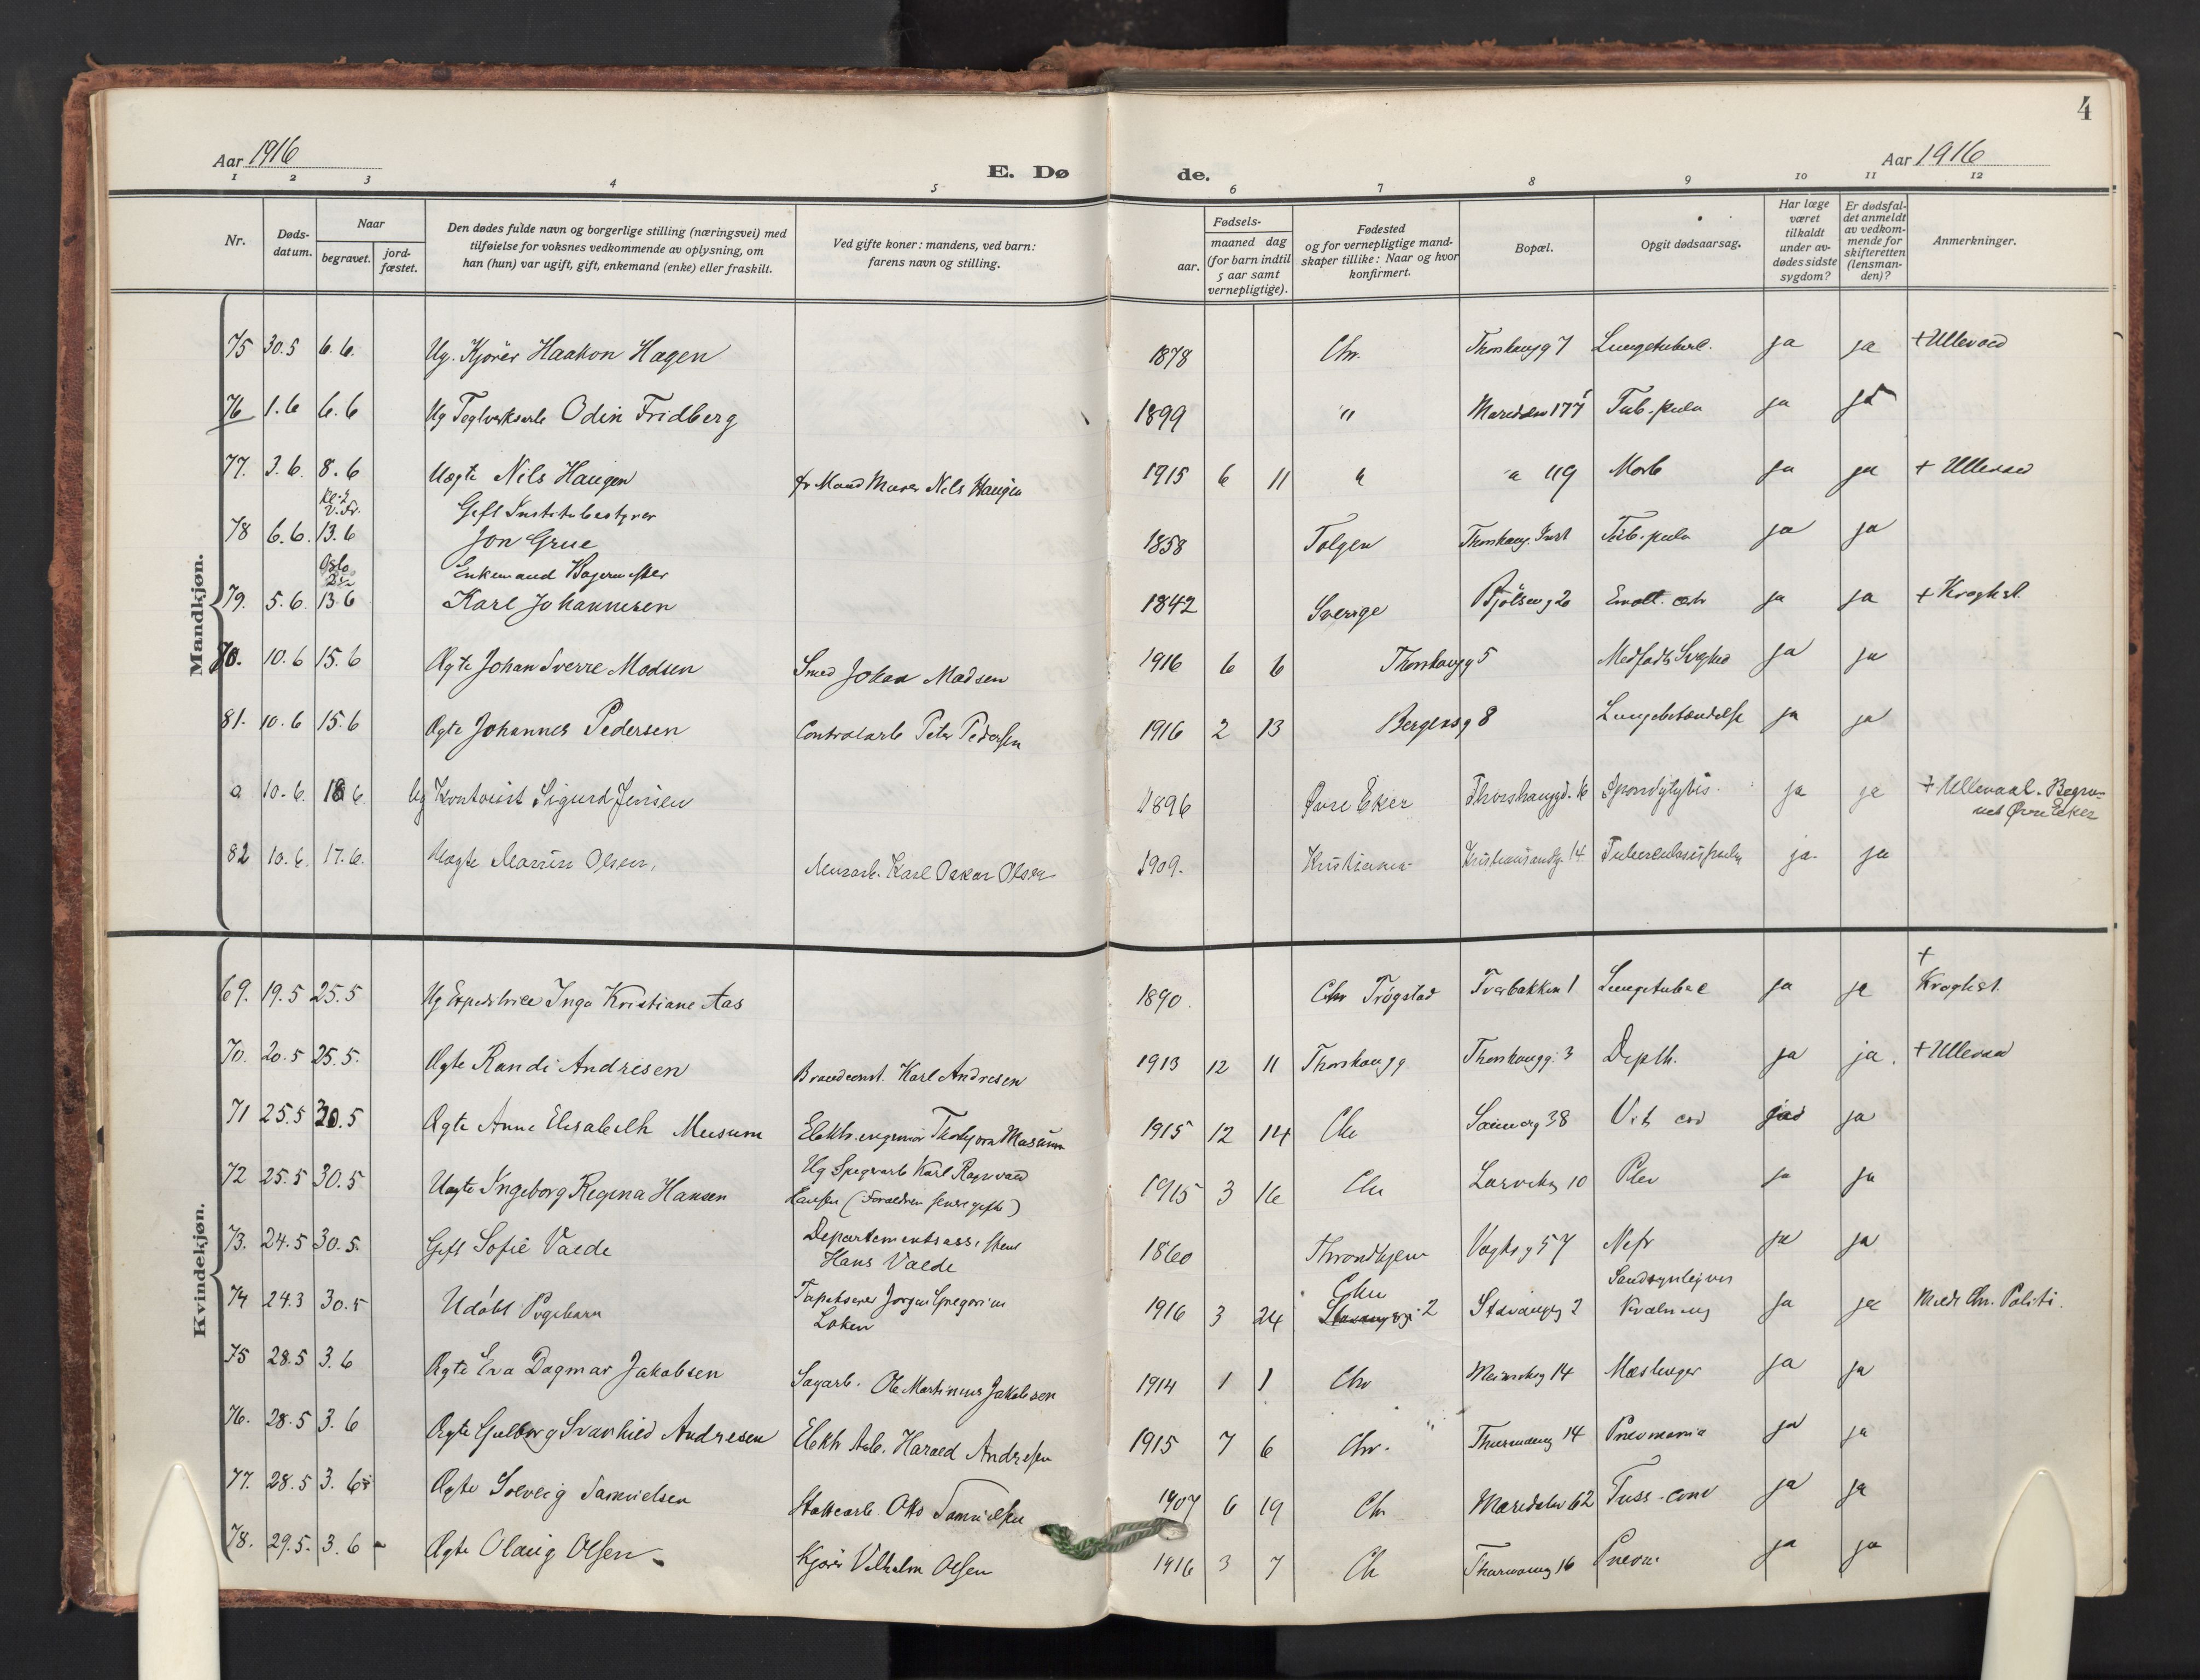 4
Aar 1916
E. Dø de.
Aar 1916
1 2 3 4 5 6 7 8 9 10 11 12
Nr.
Døds-
datum.
Naar
begravet.
jord-
fæstet.
Den dødes fulde navn og borgerlige stilling (næringsvei) med
tilføielse for voksnes vedkommende av oplysning, om
han (hun) var ugift, gift, enkemand (enke) eller fraskilt.
Ved gifte koner: mandens, ved barn:
farens navn og stilling.
Fødsels-
aar.
maaned dag
(for barn indtil
5 aar samt
vernepligtige).
Fødested
og for vernepligtige mand-
skaper tillike: Naar og hvor
konfirmert.
Bopæl.
Opgit dødsaarsag.
Har læge
været
tilkaldt
under av-
dødes sidste
sygdom?
Er dødsfal-
det anmeldt
av vedkom-
mende for
skifteretten
(lensman-
den)?
Anmerkninger.
Mandkjøn.
75 30.5 6.6. Ug. Kjörer Haakon Hagen 1878 Chr. Thorshaugg 7 Lungetuberc. ja ja + Ullevaal
76 1.6 6.6 Ug Teglverksarb Odin Fridberg 1899 " Maridalsv 177 Tub. pulm ja ja
77. 3.6 8.6 Uægte Nils Haugen Murer Nils Haugen 1915 6 11 " " 119 Morb ja ja + Ullevaal
Gift Institutbestyrer
78 6.6. 13.6 Jon Grue 1858 Tolgen Thorshaug. Inst Tub. pulm ja ja
Oslo
Enkemand Bagermester
79. 5.6. 13.6 Karl Johannesen 1842 Sverrige Bjölseng 26 ja ja + Kroghst.
10.6 15.6 Ægte Johan Sverre Madsen Smed Johan Madsen 1916 6 6 Thorshaugg 5 Medfødt Svaghed ja ja
81. 10.6 15.6 Ægte Johannes Pedersen Peter Pedersen 1916 2 13 Bergensg 8 Lungebetændelse ja ja
a 10.6. 6. Ug Kontorist Sigurd Jensen 1896 Øvre Eker Thorshauggd. 16 Spondylytis. ja ja + Ullevaal. Begra-
vet Øvre Eker
82 10.6. 17.6. Uægte Olsen, Murarb. Karl Oskar Olsen 1909. Kristiania Kristiansandsg. 14 Tuberculosis pulm ja. ja
Kvindekjøn.
69. 19.5 25.5 Ug Expeditrice Inga Kristiane Aas 1890. Trögstad Tverbakken 1 Lungetuberc ja ja + Kroghst.
70. 20.5 25.5. Ægte Randi Andresen Brandconst. Karl Andresen 1913 12 11 Thorshaugg Thorshaugg. 3 Depth. ja ja. + Ullevaal
71 25.5 30.5 Ægte Anne Elisabeth Musum Elektr.ingeniør Thorbjørn Musum 1915 12 14 Chr 38 Vit cord ja ja
72 25.5 30.5 Uægte Ingeborg Regina Hansen Ug Karl Ragnvald
Hansen (Forældrene senere gifte) 1915 3 16 Chr Larviksg 10 ja ja
73. 24.5 30.5. Gift Sofie Valde Departementsassistent
Hans Valde 1860 Throndhjem Vogtsg 57 Nefr ja ja
74 24.3 30.5 Udöbt Pigebarn Tapetserer Jørgen Gregorius
Loken 1916 3 24 Chr 2 Stavangg 2 Sandsynligvis
Kvælning ja ja Meldt Chr. Politi.
75 28.5 3.6 Ægte Eva Dagmar Jakobsen Sagarb. Ole Martinius Jakobsen 1914 1 1 Chr 14 Mæslinger ja ja
76. 28.5 3.6 Ægte Gulborg Svanhild Andresen Elektr Arb. Harald Andresen 1915 7 6 Chr. 14 Pneumonia ja ja
77. 28.5 3.6 Ægte Solveig Samuelsen Otto Samuelsen 1907 6 19 Chr Maridalsv 62 Tuss. conv ja ja
78. 29.5. 3.6 Ægte Olaug Olsen Kjører Vilhelm Olsen 1916 3 7 Ch 16 Pneum. ja ja